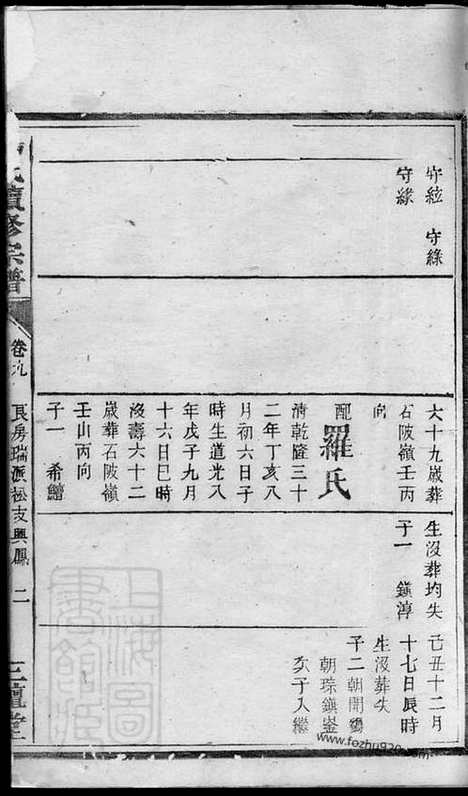 守絃 守綠
守緣
大十九歲葬
石陂嶺壬丙
向
配羅氏
清乾隆三十
二年丁亥八
月初六日子
時生道光八
年戊子九月
十六日巳時
沒壽六十二
歲葬石陂嶺
壬山丙向
子一 希鱛
生沒葬均失
子一 鎮淳
己丑十二月
十七日辰時
生沒葬失
子二朝開
朝琮鎮崟
次子入繼
氏續修宗譜
卷九
長房瑞派松支興鳳 二
三龍堂
上海圖書館藏
www.fozhu920.com